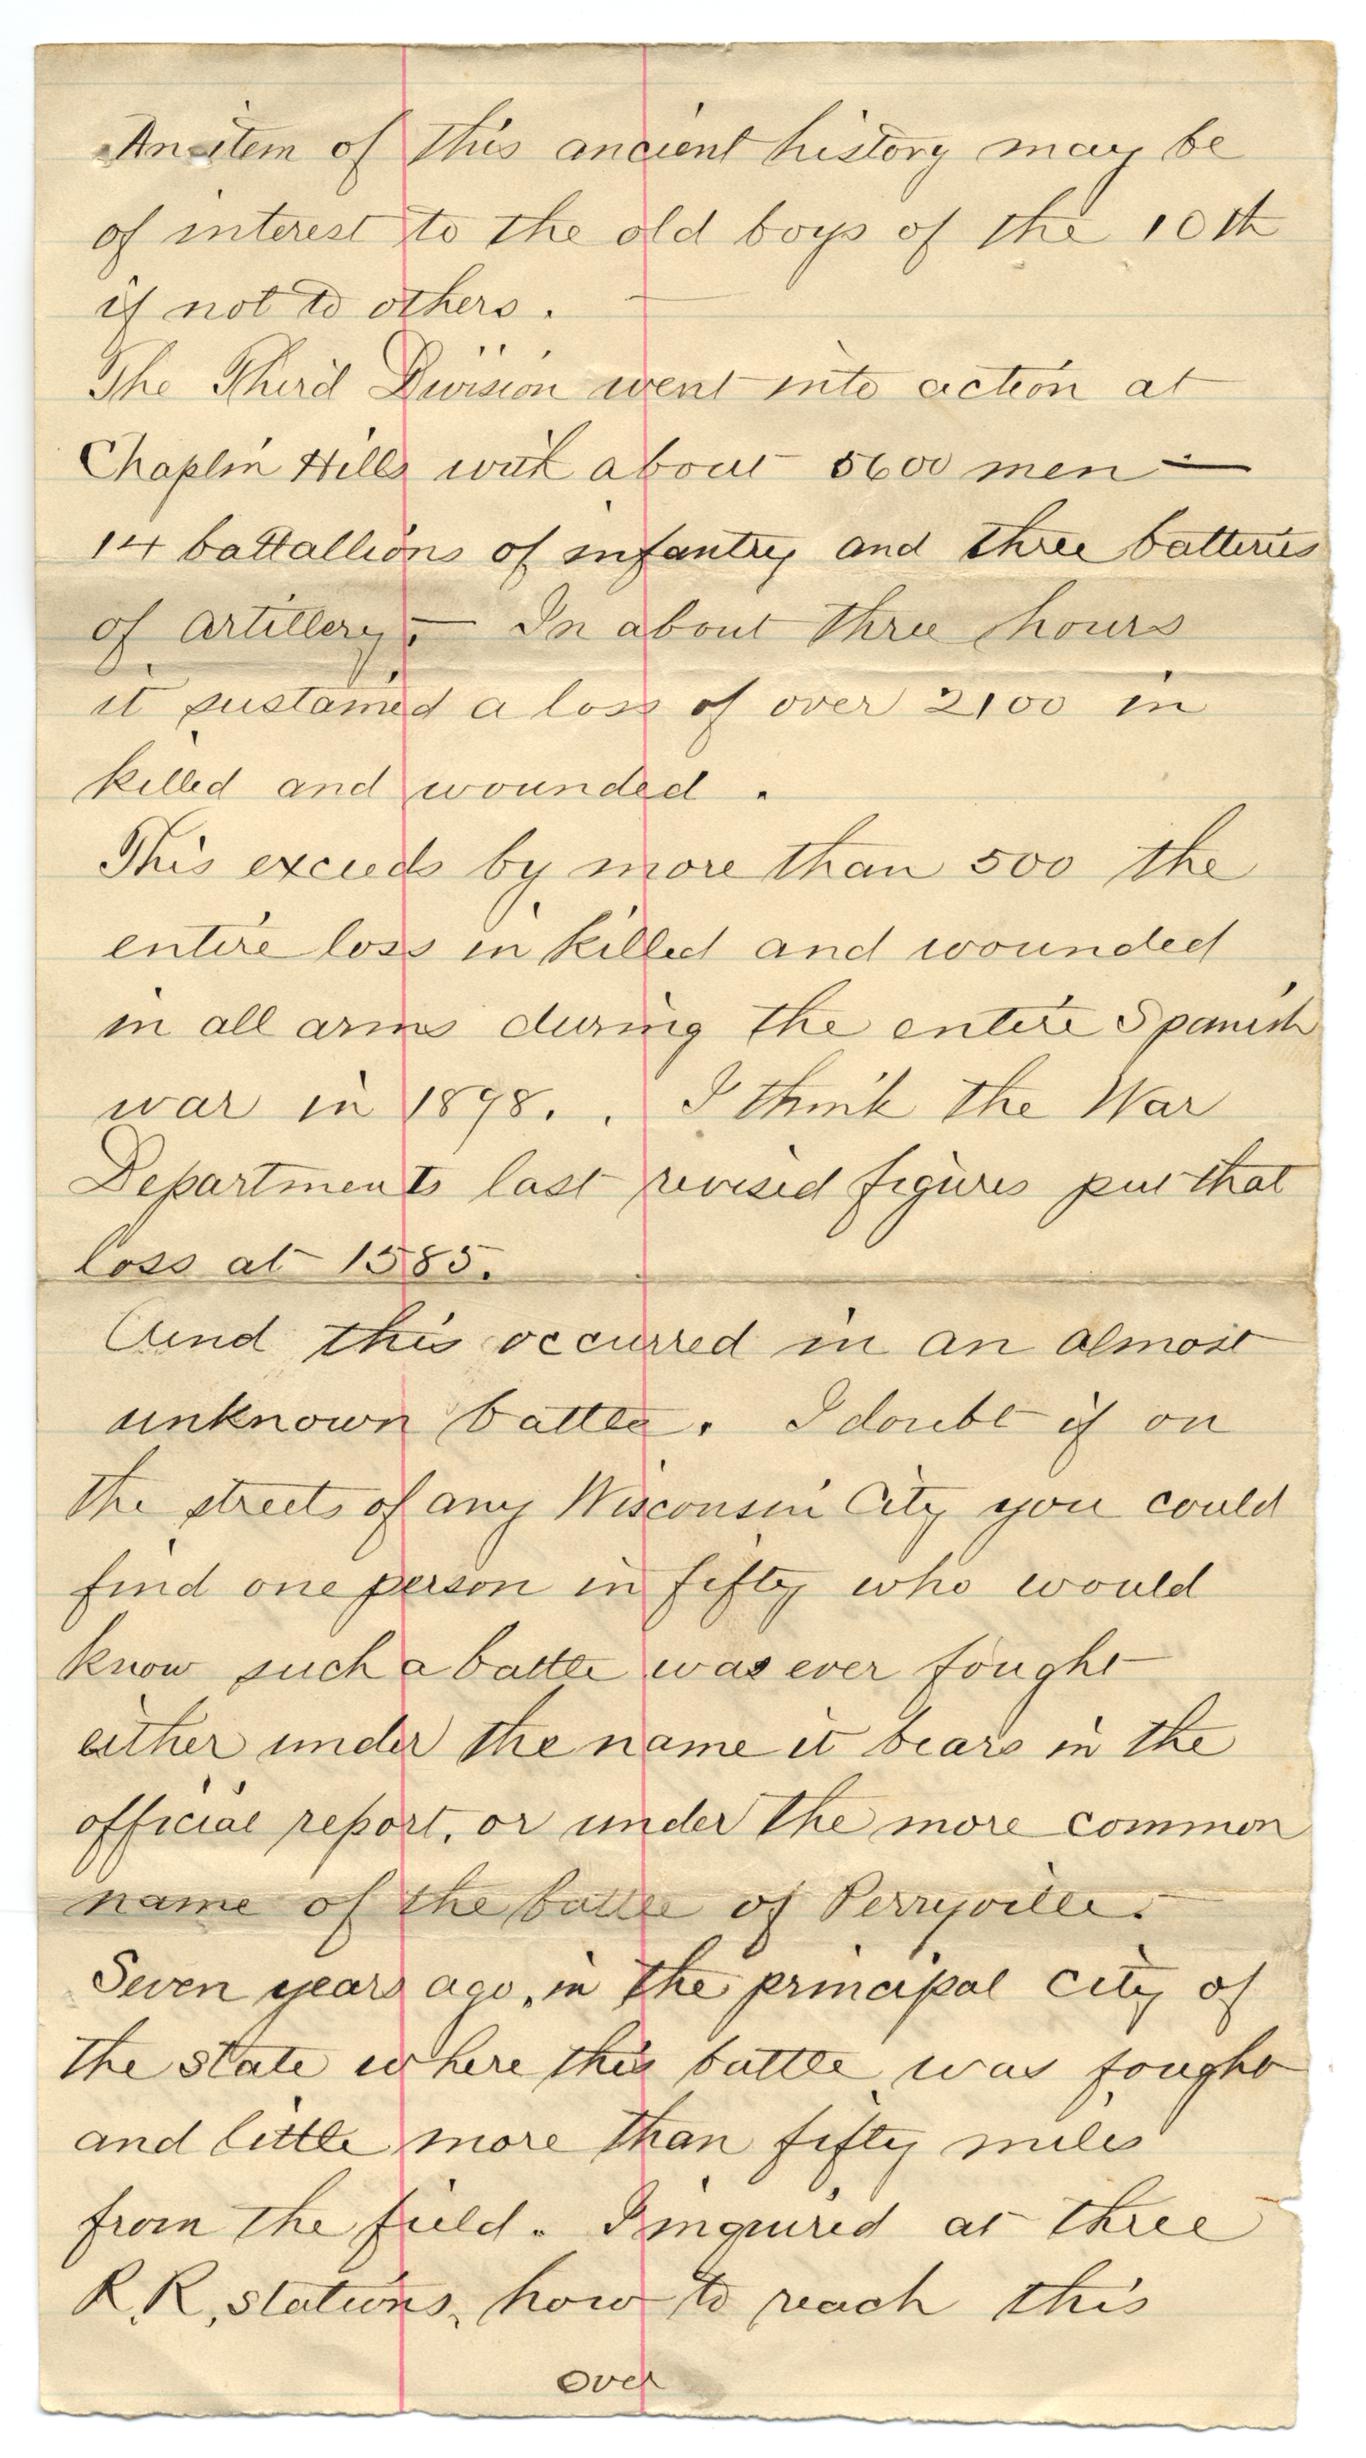 An item of this ancient history may be
of interest to the old boys of the 10th
if not to others. —
The Third Division went into action at
Chaplin Hills with about 5600 men —
14 battallions of infantry and three batteries
of artillery. — In about three hours
it sustained a loss of over 2100 in
killed and wounded .
This exceeds by more than 500 the
entire loss in killed and wounded
in all arms during the entire Spanish
war in 1898. . I think the War
Departments last revised figures put that
loss at 1585.
And this occurred in an almost
unknown battle. I doubt if on
the streets of any Wisconsin City you could
find one person in fifty who would
know such a battle was ever fought
either under the name it bears in the
official report, or under the more common
name of the battle of Perryville.
Seven years ago, in the principal city of
the state where this battle was fought
and little more than fifty miles
from the field. I inquired at three
R.R, stations, how to reach this
over